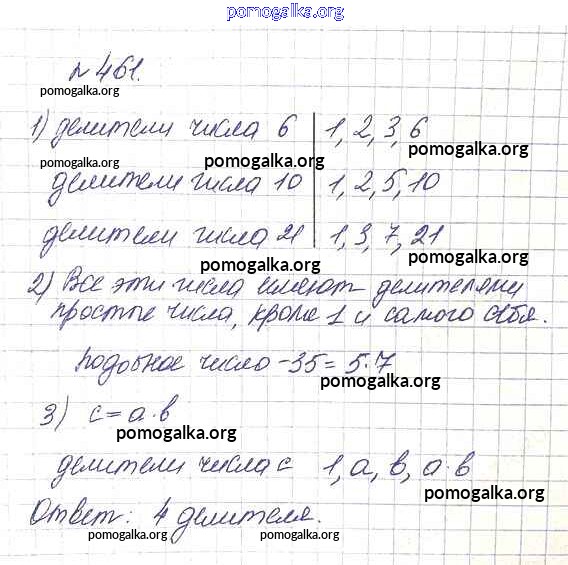 pomogalka.org
№ 461.
pomogalka.org
1) делители числа 6 | 1, 2, 3, 6
pomogalka.org
pomogalka.org pomogalka.org
делители числа 10 | 1, 2, 5, 10
делители числа 21 | 1, 3, 7, 21
pomogalka.org pomogalka.org
2) Все эти числа имеют делителями
простые числа, кроме 1 и самого себя.
pomogalka.org
Подобное число - 35 = 5·7
pomogalka.org
3) c = a·b
pomogalka.org
делители числа c 1, a, b, a·b
pomogalka.org
Ответ: 4 делителя.
pomogalka.org pomogalka.org